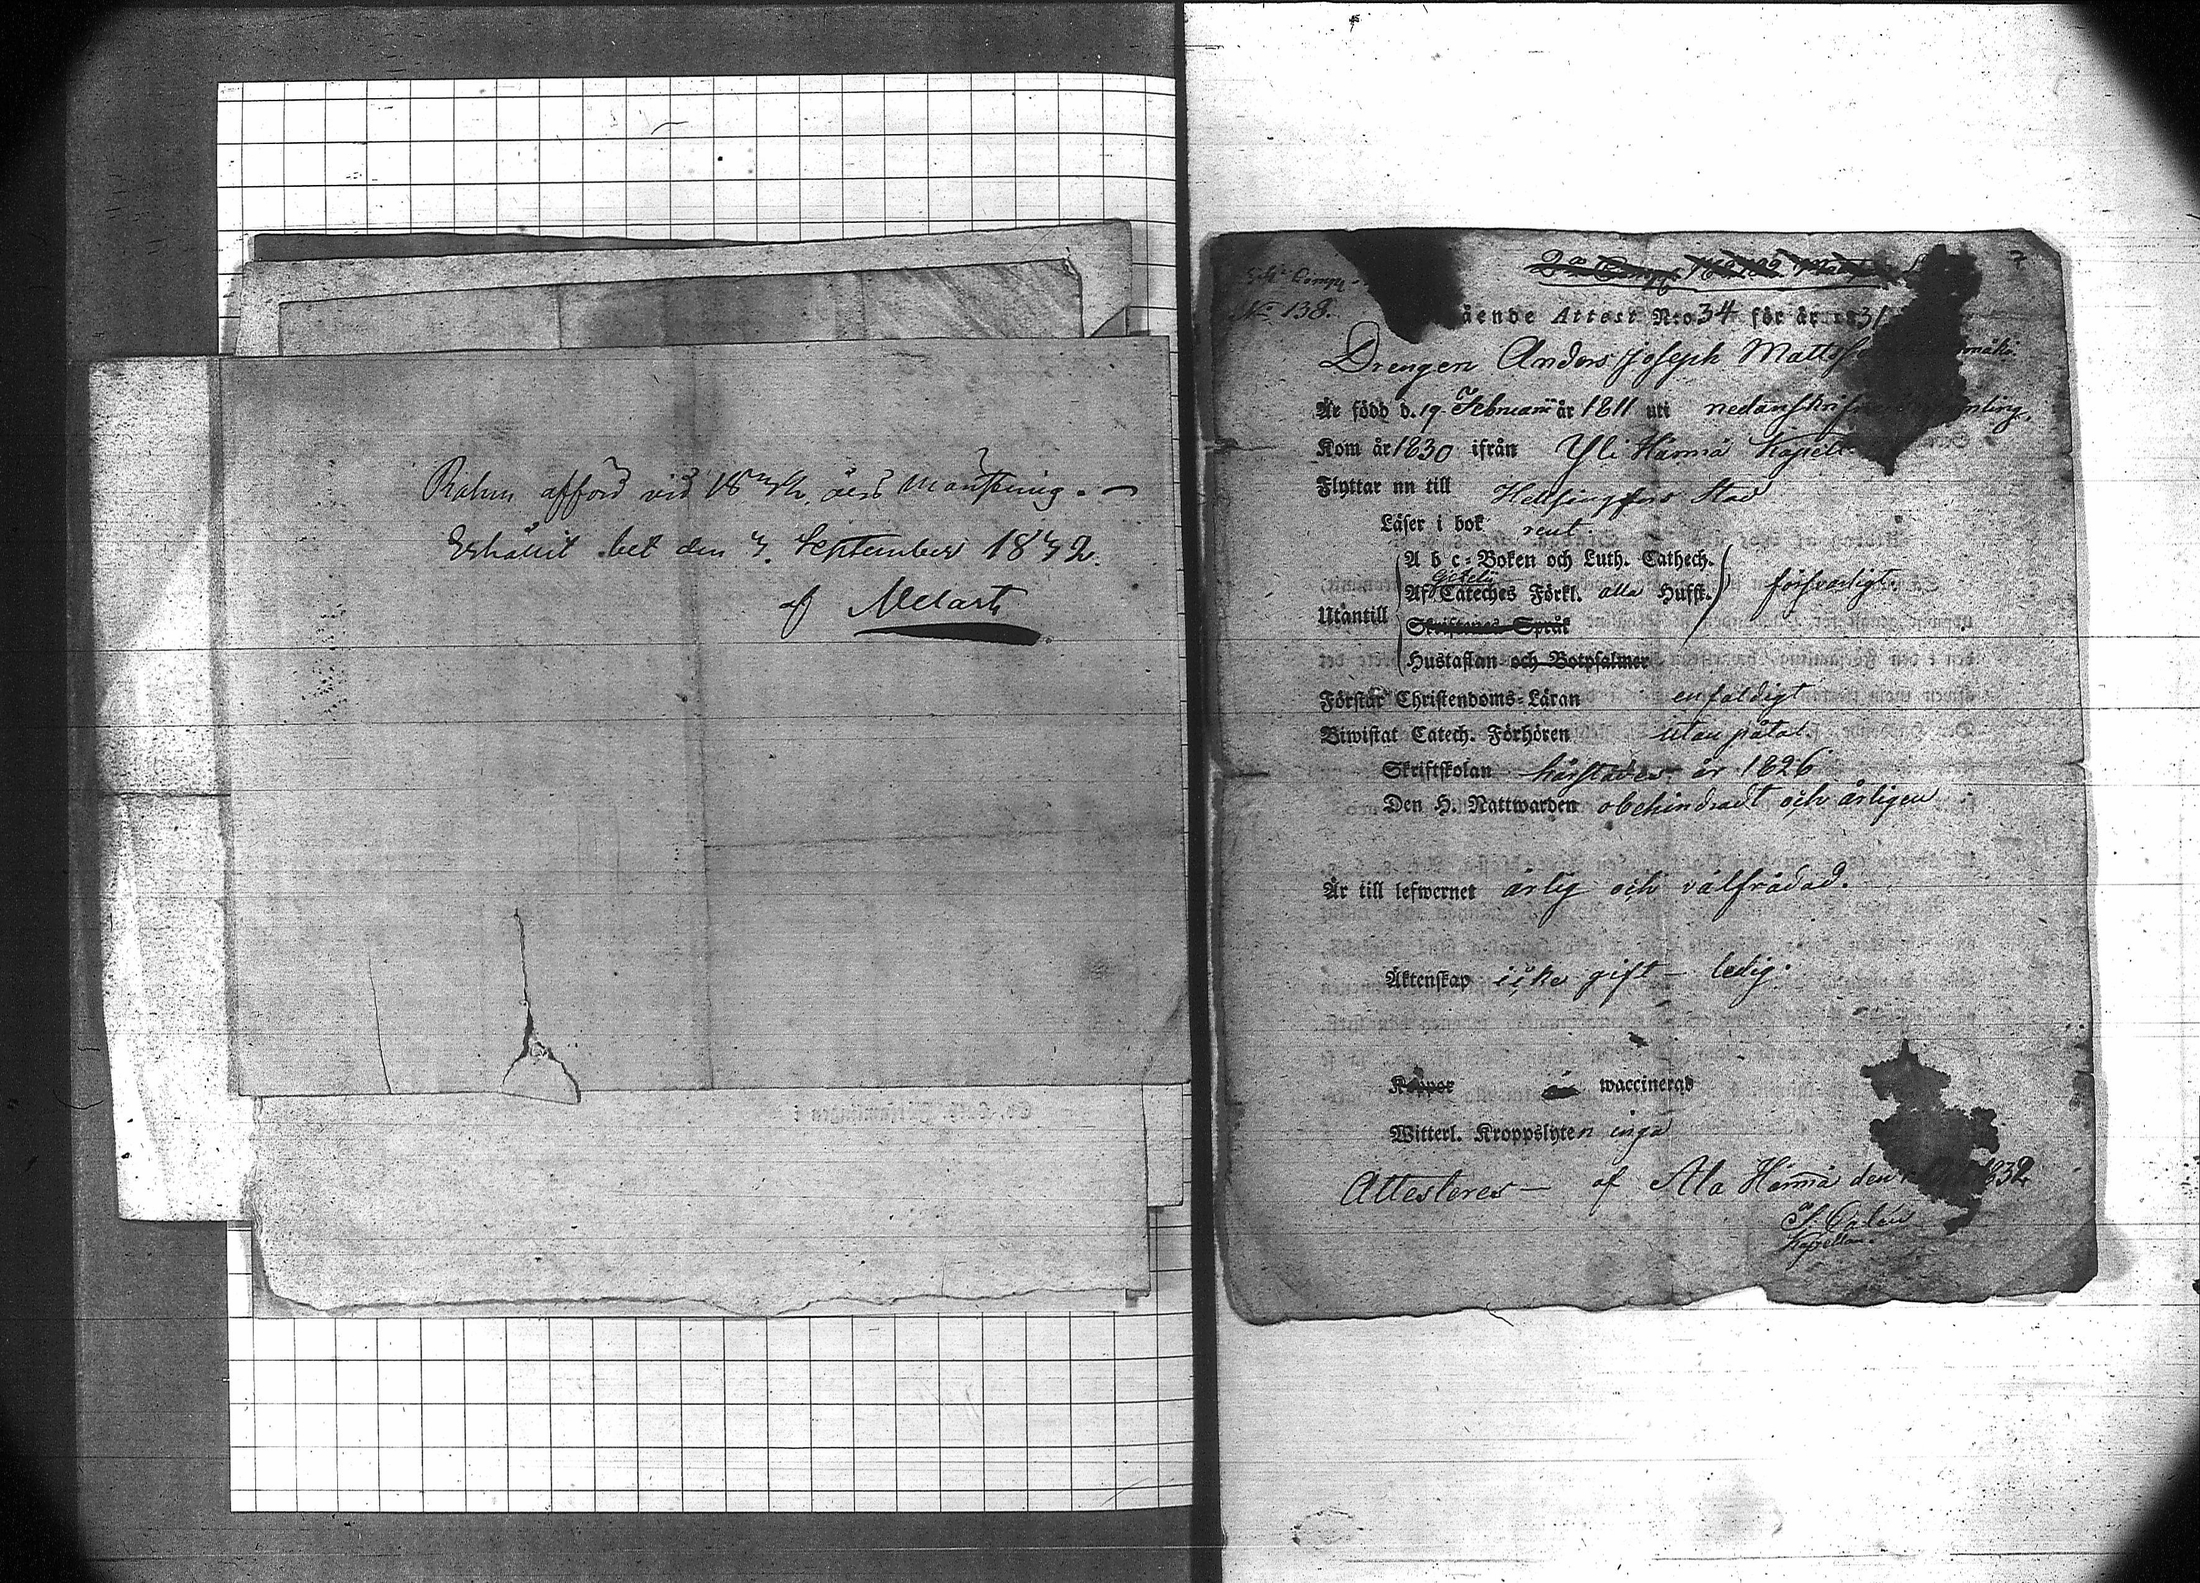 vid 1832 års Mantskrifning. —
den 3 September 1832.
af Melart
Comp.
No 138.
ående Attest N:o 34 för år 1831
Drengen Anders Joseph Matts
Är född d. 19 Februarii år 1811 uti nedanskrifne
Kom år 1830 ifrån Yli Härmä Kapell
Flyttar nu till Helsingfors Stad
Läser i bok rent
A b c-Boken och Luth. Cathech.
Af Cateches Förkl. alla Hufst. försvarligt.
Utantill
Skriftenes Språk
Hustaflan och Botpsalmer
Förstår Christendoms-Läran enfaldigt
Biwistat Catech. Förhören utan påtal
Skriftskolan härstädes år 1826
Den H. Nattwarden obehindradt och årligen
Är till lefwernet ärlig och välfrädad.
Äktenskap icke gift — ledig.
Koppor waccinerad
Witterl. Kroppslyten inga
Attesteres — af Ala Härmä den 1832
Kapellan.